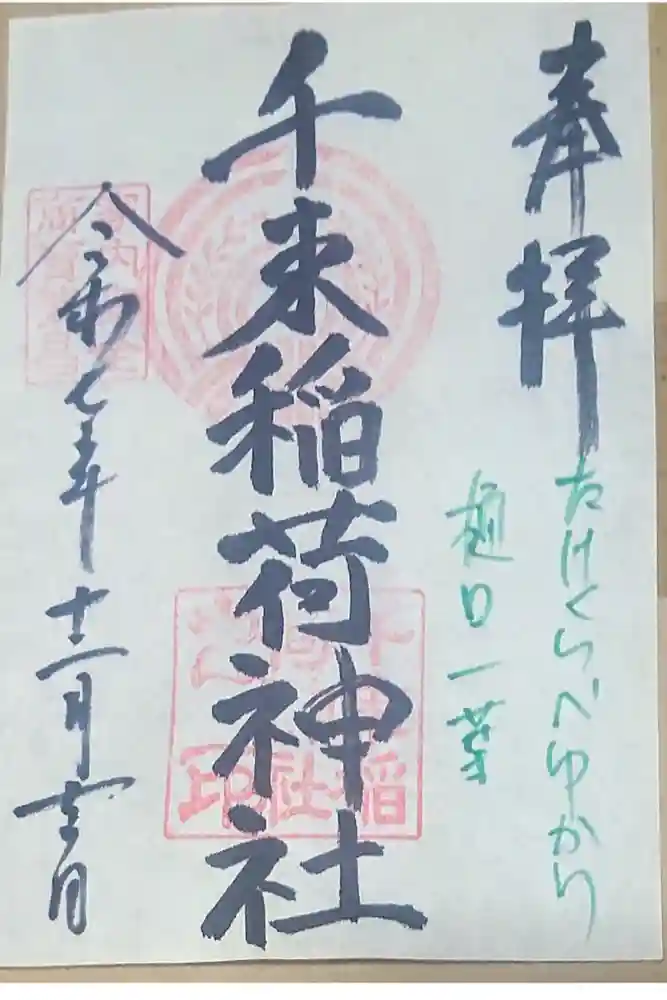 奉拝
たけくらべゆかり
樋口一葉
千束稲荷神社
千束稲
荷神社
之印
令和七年十二月